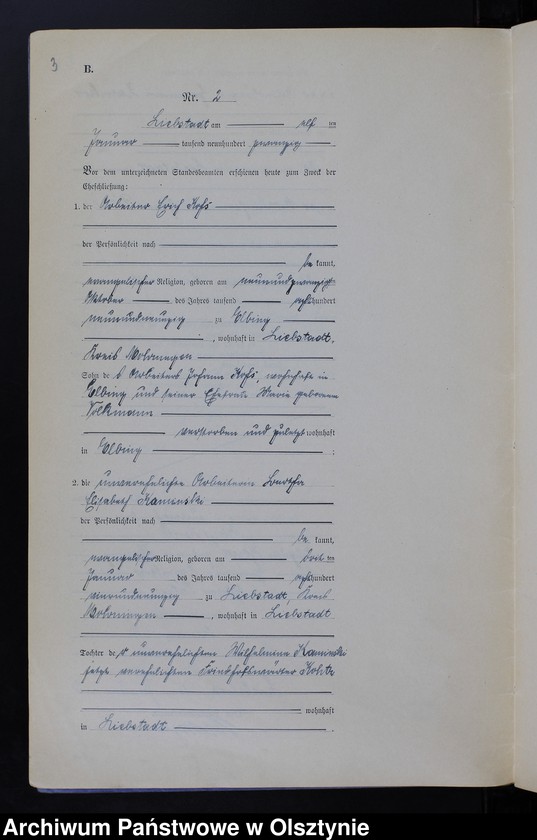 3
B.
Nr. 2
Liebstadt am elf ten
Januar tausend neunhundert zwanzig
Vor dem unterzeichneten Standesbeamten erschienen heute zum Zweck der
Eheschließung:
1. der Arbeiter Erich
der Persönlichkeit nach
be kannt,
evangelischer Religion, geboren am neunundzwanzigsten
Oktober des Jahres tausend achthundert
neunundneunzig zu Elbing
, wohnhaft in Liebstadt,
Kreis Mohrungen
Sohn des Arbeiters Johann wohnhaft in
Elbing und seiner Ehefrau Marie geborenen
Volkmann
verstorben und zuletzt wohnhaft
in Elbing :
2. die unverehelichte Arbeiterin Bertha
Elisabeth Kaminski
der Persönlichkeit nach
be kannt,
evangelischer Religion, geboren am ten
Januar des Jahres tausend achthundert
vierundneunzig zu Liebstadt, Kreis
Mohrungen , wohnhaft in Liebstadt
Tochter der unverehelichten Wilhelmine Kaminski
jetzt verehelichten Friedhofswärter
wohnhaft
in Liebstadt .
Archiwum Państwowe w Olsztynie